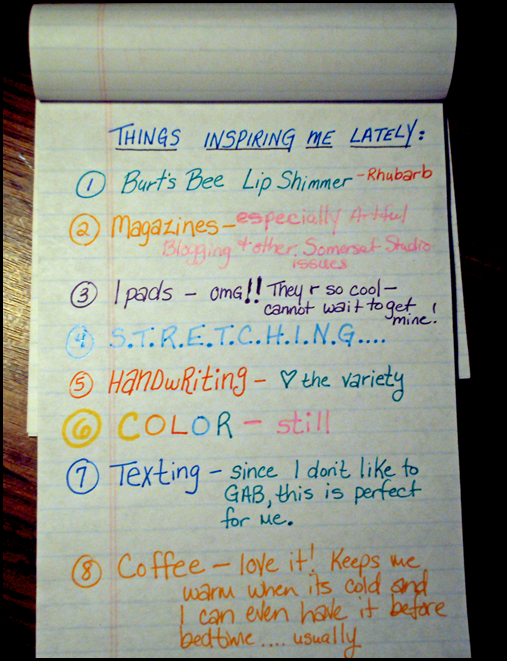 THINGS INSPIRING ME LATELY:
① Burt's Bee Lip Shimmer - Rhubarb
② Magazines - especially Artful
Blogging + other Somerset Studio
issues
③ Ipads - omg!! They r so cool -
cannot wait to get
mine!
④ S.T.R.E.T.C.H.I.N.G....
⑤ HANDWRiting - ♡ the variety
⑥ COLOR - still
⑦ Texting - since I don't like to
GAB, this is perfect
for me.
⑧ Coffee - love it! Keeps me
warm when its cold and
I can even have it before
bedtime .... usually